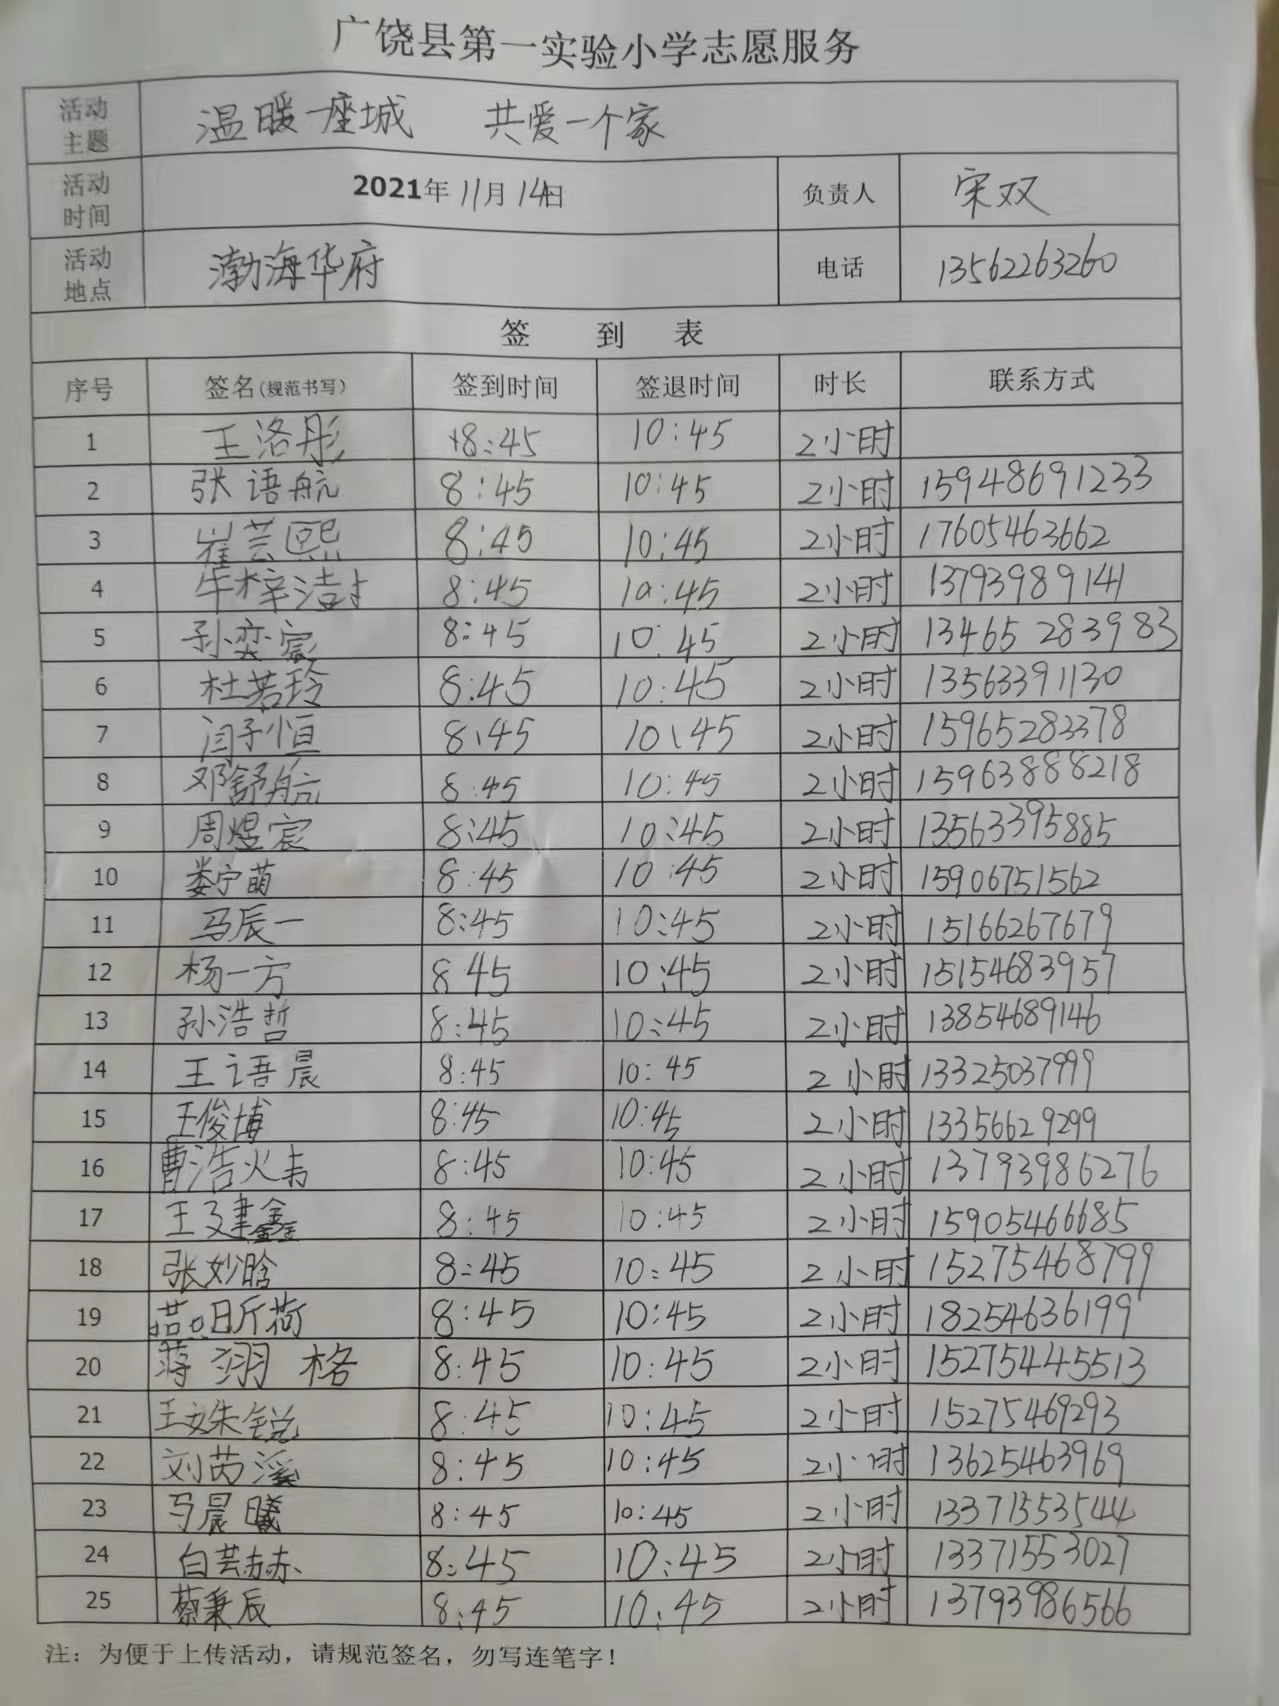 广饶县第一实验小学志愿服务
活动主题 温暖一座城 共爱一个家
活动时间 2021年11月14日 负责人 宋双
活动地点 渤海华府 电话 13562263260
签 到 表
序号 签名(规范书写) 签到时间 签退时间 时长 联系方式
1 王洛彤 8:45 10:45 2小时
2 张语航 8:45 10:45 2小时 15948691233
3 崔芸熙 8:45 10:45 2小时 17605463662
4 牛梓 8:45 10:45 2小时 13793989141
5 孙奕宸 8:45 10:45 2小时 13465283983
6 杜若玲 8:45 10:45 2小时 13563391130
7 闫予恒 8:45 10:45 2小时 15965283378
8 邓舒航 8:45 10:45 2小时 15963888218
9 周煜宸 8:45 10:45 2小时 13563395885
10 娄宁萌 8:45 10:45 2小时 15906751562
11 马辰一 8:45 10:45 2小时 15166267679
12 杨一方 8 45 10:45 2小时 15154683957
13 孙浩哲 8:45 10:45 2小时 13854689146
14 王语晨 8:45 10:45 2小时 13325037999
15 王俊博 8:45 10:45 2小时 13356629299
16 曹浩炜 8:45 10:45 2小时 13793986276
17 王建鑫 8:45 10:45 2小时 15905466685
18 张妙晗 8:45 10:45 2小时 15275468799
19 8:45 10:45 2小时 18254636199
20 蒋翊格 8:45 10:45 2小时 15275445513
21 王姝锐 8:45 10:45 2小时 15275469293
22 刘芮溪 8:45 10:45 2小时 13625463969
23 马晨曦 8:45 10:45 2小时 13371553544
24 白芸赫 8:45 10:45 2小时 13371553027
25 蔡秉辰 8:45 10:45 2小时 13793986566
注：为便于上传活动，请规范签名，勿写连笔字！